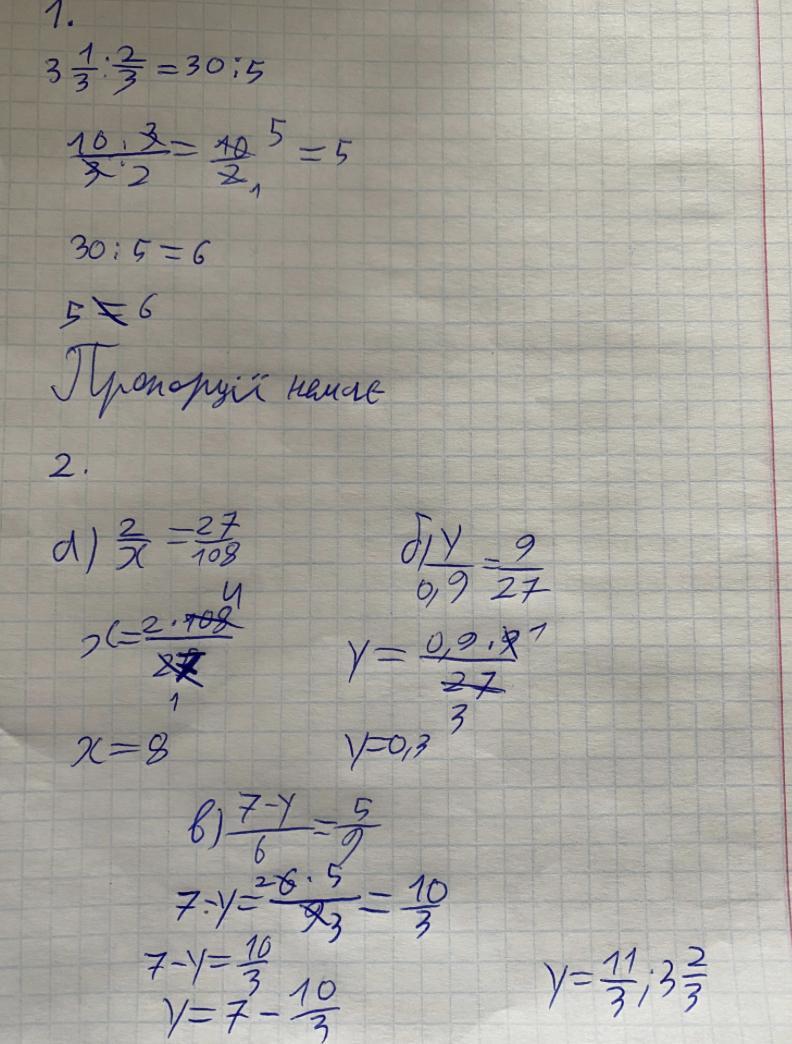 1.
3 1/3 : 2/3 = 30 : 5
10 · 3 / 3 · 2 = 10 / 2 5 1 = 5
30 : 5 = 6
5 ≠ 6
Пропорції немає
2.
а) 2/x = 27/108
б) y/0,9 = 9/27
x = 2 · 108 4 / 27 1
y = 0,9 · 9 1 / 27 3
x = 8
y = 0,3
в) 7-y/6 = 5/9
7-y = 2 6 · 5 / 9 3 = 10/3
7-y = 10/3
y = 7 - 10/3
y = 11/3 ; 3 2/3